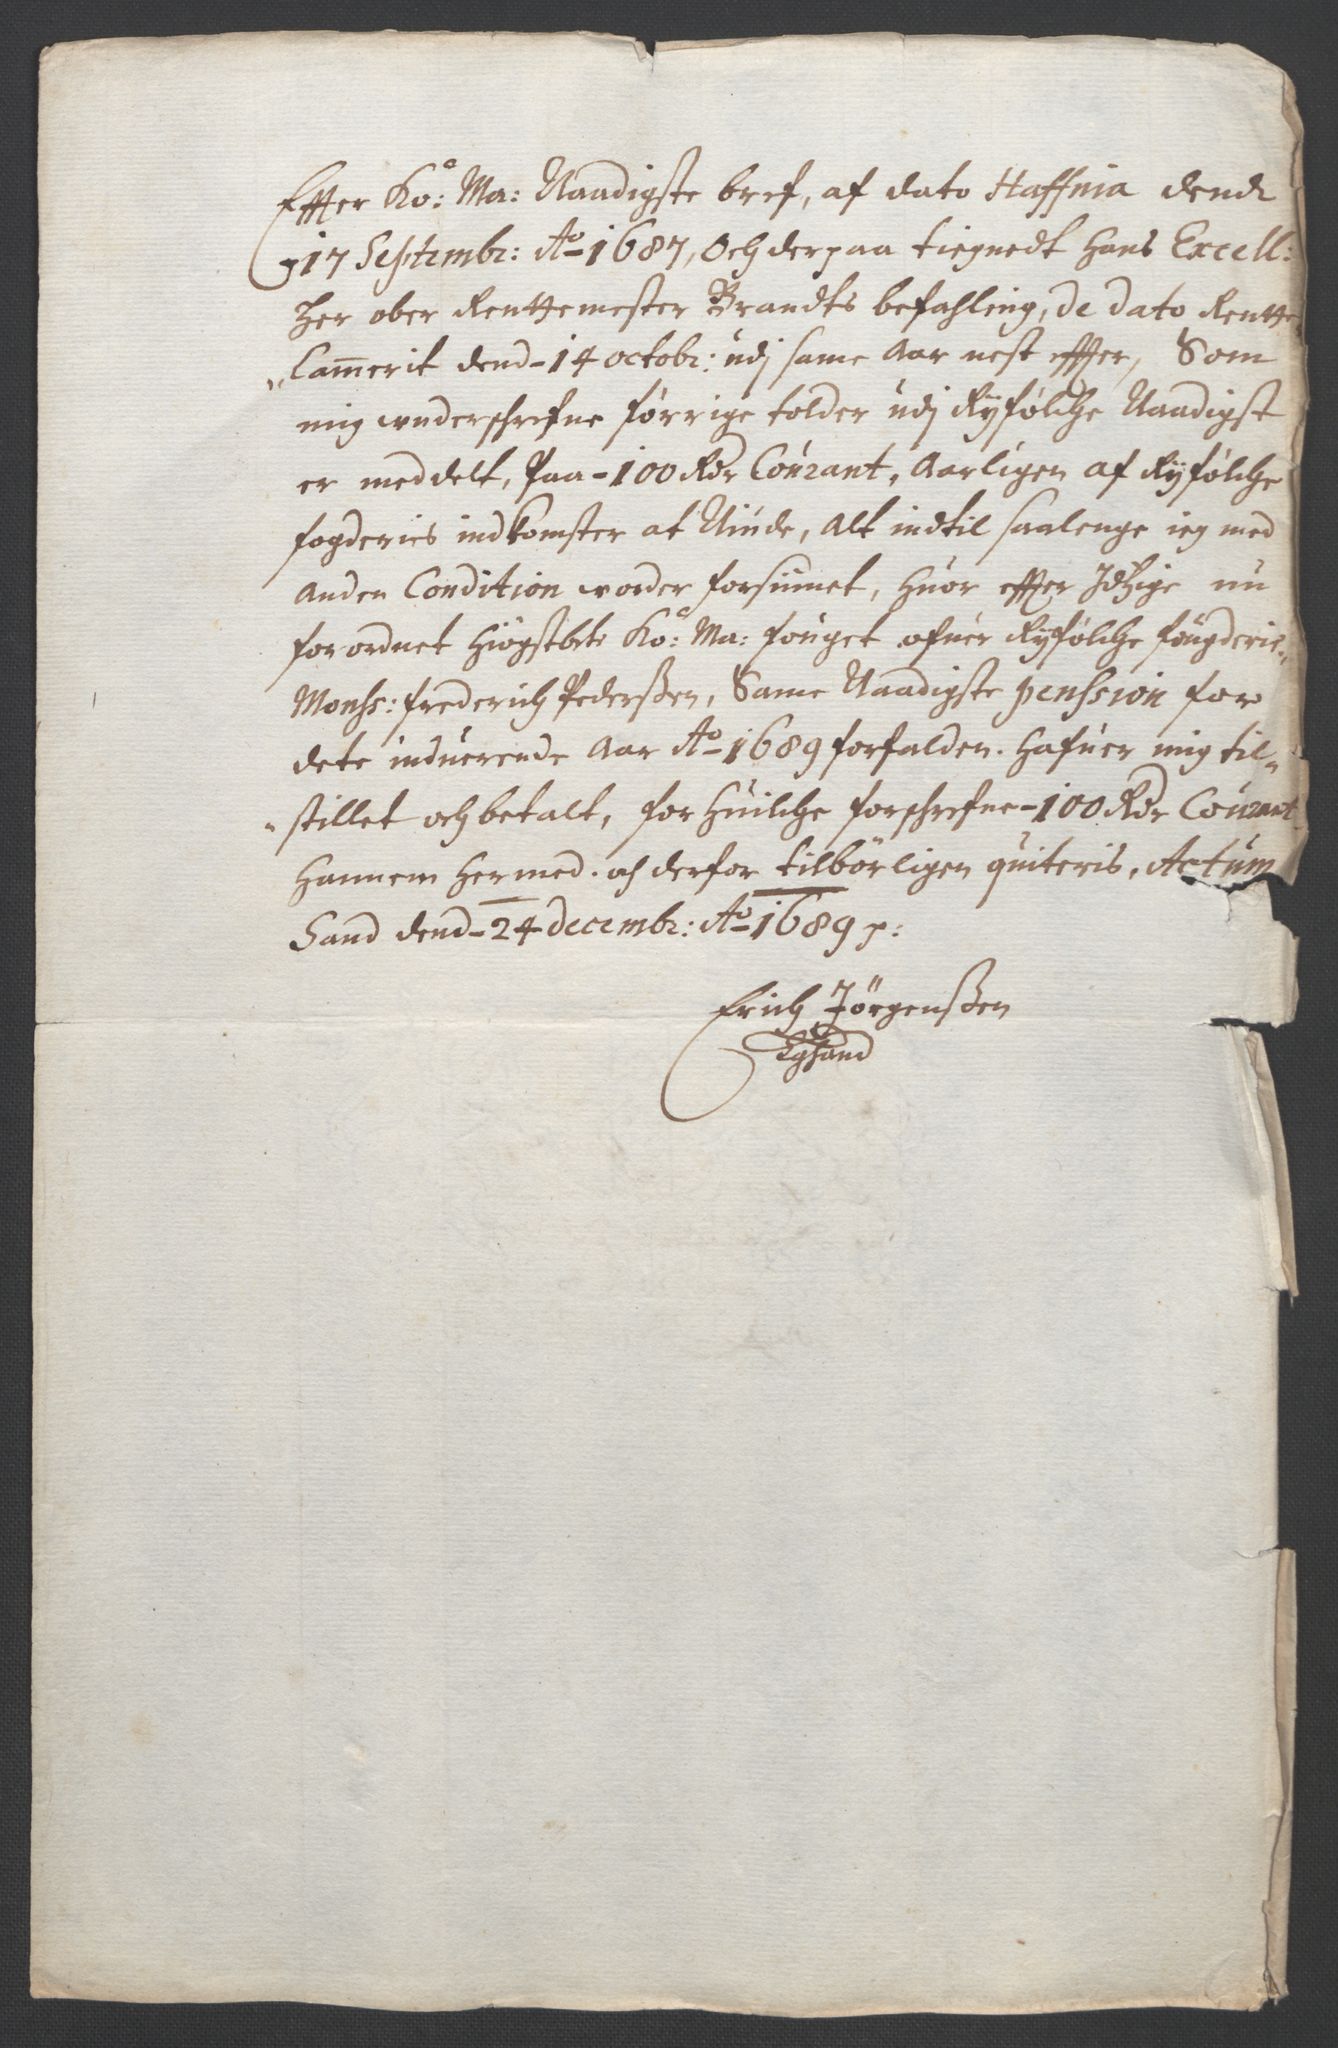 Effter Ko: Ma: Naadigste bref, af dato Haffnia dend
17 Septembr: Ao 1687, Och derpaa tiegnedt Hans Excell:
Her ober Renttemester Brandts befahling, de dato Rentte
Cammerit dend 14 octobr: udj same Aar nest effter, Som
mig underschrefne førrige tolder udj Ryfølche Naadigst
er meddelt, Paa 100 Rdr Courant, Aarligen af Ryfølche
fogderies indkomster at Niude, Alt indtil saalenge ieg med
Anden Condition vorder forsiunet, Huor effter Idtzige nu
forordnet Høgstbte Ko: Ma: fouget ofuer Ryfølche fougderie,
Monss: Frederich Pederssen, Same Naadigste penssion for
dete induerende Aar Ao 1689 forfalden. Hafuer mig til-
stillet och betalt, for Huilche forschrefne 100 Rdr Courant
Hannem Hermed och derfor tilbörligen quiteris, Actum
Sand dend 24 decembr: Ao 1689 p:
Erich Jörgenssen
Eghand